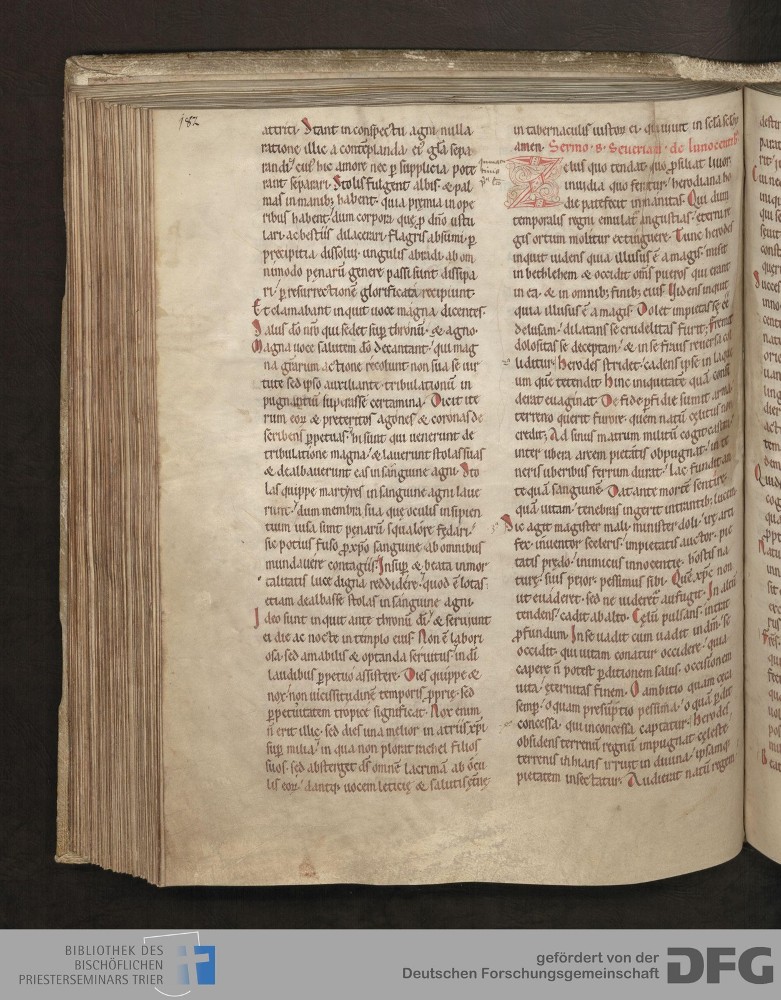 182
attriti. Stant in conspectu agni nulla
ratione illic a contēplanda ei' glā sepa
randi. cui' hic amore nec p̄ supplicia pote
rant separari. Stolis fulgent albis. & pal
mas in manib; habent. quia premia in ope
ribus habent. dum corpora que p̄ dn̄o ustu
lari. ac bestiis dilacerari. flagris absumi. p̄
precipitia dissolui. ungulis abradi. ab om
nimodo penarū genere passi sunt dissipa
ri. p̄ resurrectionē glorificata recipiunt.
Et clamabant inquit uoce magna dicentes.
Salus dō nr̄o qui sedet sup̄ thronū. & agno.
Magna uoce salutem dō decantant. qui mag
na gr̄arum actione recolunt non sua se uir
tute sed ipso auxiliante. tribulationū in
pugnantiū superasse certamina. Dicit ite
rum eor̄ & preteritos agones & coronas de
scribens p̄petuas. hi sunt qui uenerunt de
tribulatione magna. & lauerunt stolas suas
& dealbauerunt eas in sanguine agni. Sto
las quippe martyres in sanguine agni laue
runt. dum membra sua que oculis insipien
tium uisa sunt penarū squalore fedari.
sic potius fuso p̄ xp̄o sanguine ab omnibus
mundauere contagiis. Insup̄ & beata inmor
talitatis luce digna reddidere. quod ē lotas
etiam dealbasse stolas in sanguine agni.
Ideo sunt inquit ante thronū dī. & seruiunt
ei die ac nocte in templo eius. Non ē labori
osa. sed amabilis & optanda seruitus in dī
laudibus p̄petuo assistere. Dies quippe &
nox non uicissitudinē temporis p̄prie. sed
p̄petuitatem tropice significat. Nox enim
n̄ erit illic. sed dies una melior in atriis xp̄i
sup̄ milia. in qua non plorat rachel filios
suos. sed absterget dS omnē lacrimā ab ocu
lis eor̄. dantq; uocem leticie & salutis eterne
in tabernaculis iustor̄ ei. qui uiuit in sc̄la sc̄lor̄
amen. Sermo. S. Seueriani. de Innocentib;
Zelus quo tendat. quo p̄siliat liuor
inuidia quo feratur. herodiana ho
die patefecit inmanitas. Qui dum
temporalis regni emulat' angustias. eterni re
gis ortum molitur extinguere. Tunc herodes
inquit uidens quia illusus ē a magis. misit
in bethlehem & occidit om̄s pueros qui erant
in ea. & in omnib; finib; eius. Videns inquit
quia illusus ē a magis. Dolet impietas se eē
delusam. dilatans se crudelitas furit. fremit
dolositas se deceptam. & in se fraus reuersa col
liditur. Herodes stridet. cadens ipse in laque
um quē tetendit. Hinc iniquitatē quā condi
derat euaginat. De fide p̄fidie sumit arma.
terreno querit furore. quem natū celitus non
credit. Ad sinus matrum militū cogit castra.
inter ubera arcem pietatis obpugnat. in te
neris uberibus ferrum durat. lac fundit an
te quā sanguinē. Dat ante mortē sentire.
quā uitam. tenebras ingerit intrantib; lucem.
Sic agit magister mali. minister doli. ire arti
fex. inuentor sceleris. impietatis auctor. pie
tatis predo. inimicus innocentie. hostis na
ture. suis peior. pessimus sibi. Quē xp̄c non
ut euaderet. sed ne uideret aufugit. In altū
tendens. cadit ab alto. Celū pulsans. intrat
p̄fundum. In se uadit cum uadit in dm̄. se
occidit. qui uitam conatur occidere. quia
capere n̄ potest p̄ditionem salus. occasionem
uita. eternitas finem. O ambitio quam ceca
semp̄. o quam presūptio pessima. o quā p̄dit
concessa. qui inconcessa captatur. Herodes
obsidens terrenū regnū impugnat celeste.
terrenis inhians irruit in diuina. ipsamq;
pietatem insectatur. Audierat natū regem
BIBLIOTHEK DES
BISCHÖFLICHEN
PRIESTERSEMINARS TRIER
gefördert von der
Deutschen Forschungsgemeinschaft
DFG